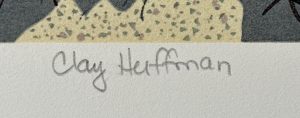 Clay Huffman